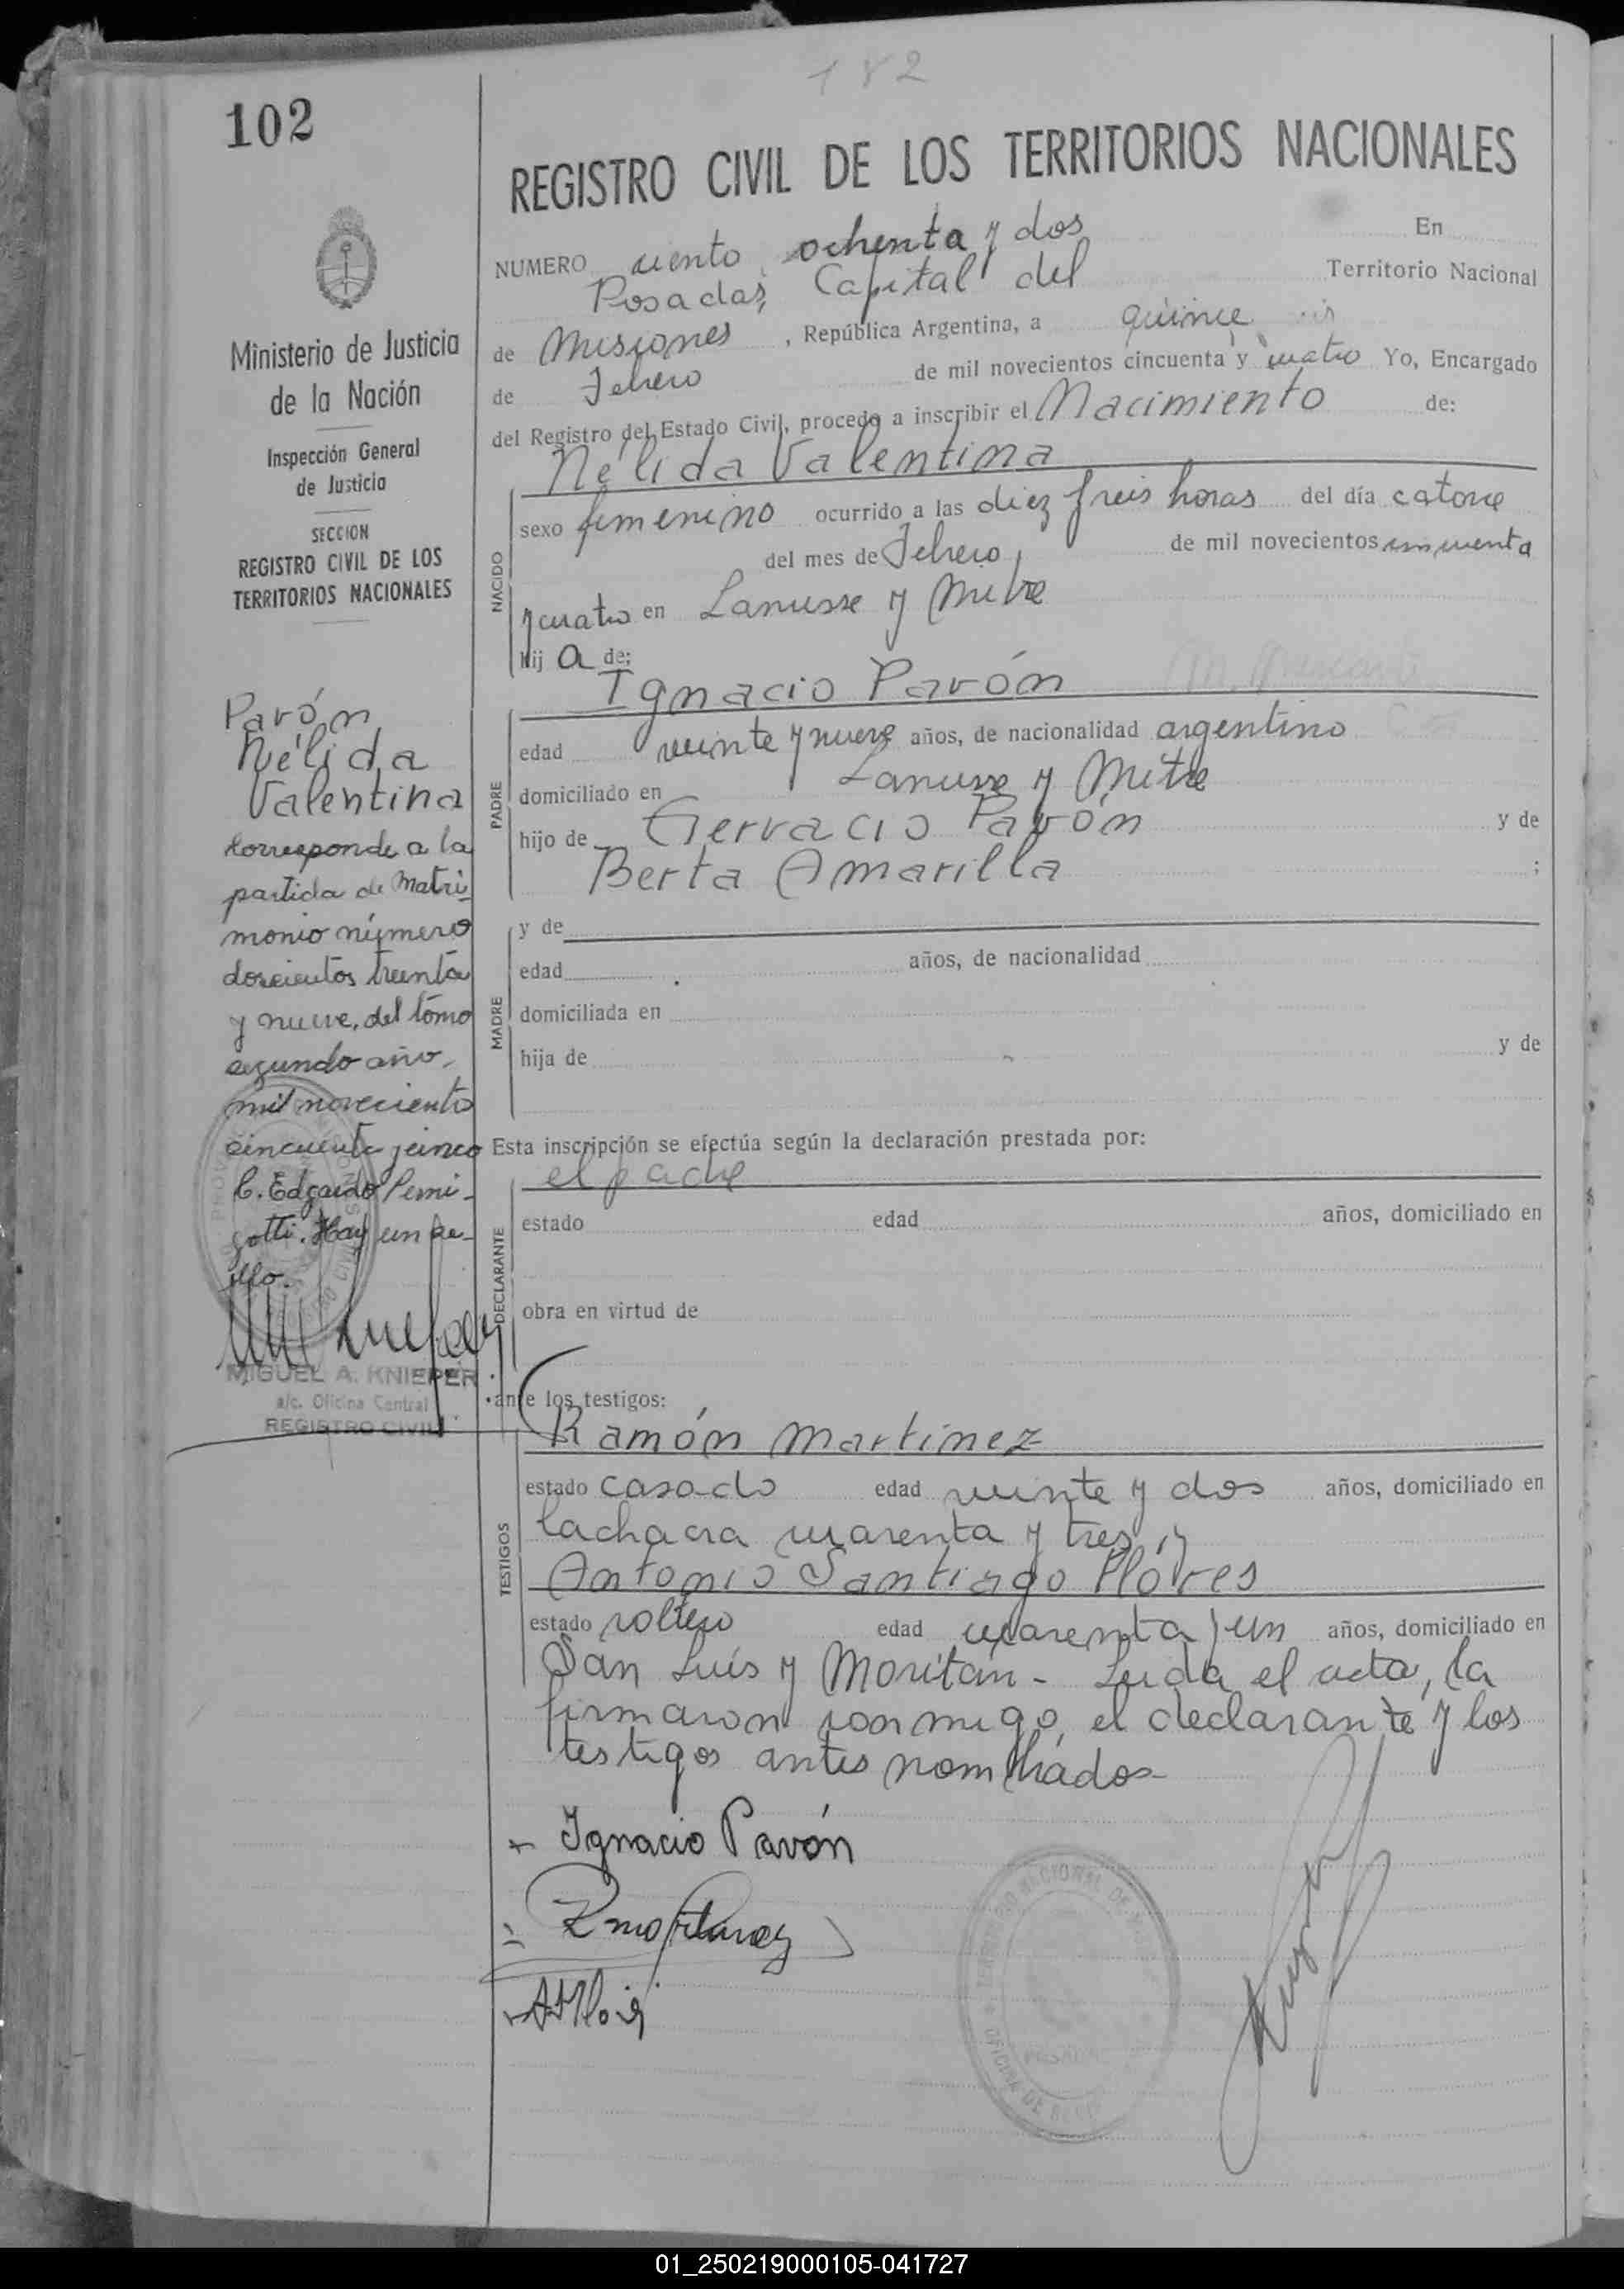 182
102
REGISTRO CIVIL DE LOS TERRITORIOS NACIONALES
NUMERO ciento ochenta y dos En
Posadas, Capital del Territorio Nacional
de Misiones, República Argentina, a quince
de Febrero de mil novecientos cincuenta y cuatro Yo, Encargado
del Registro del Estado Civil, procedo a inscribir el Nacimiento de:
Nélida Valentina
NACIDO
sexo femenino ocurrido a las diez y seis horas del día catorce
del mes de Febrero, de mil novecientos cincuenta
y cuatro en Lanusse y Mitre
hij a de:
Ignacio Pavón
PADRE
edad veinte y nueve años, de nacionalidad argentino
domiciliado en Lanusse y Mitre
hijo de Gervacio Pavón y de
Berta Amarilla ;
MADRE
y de
edad años, de nacionalidad
domiciliada en
hija de y de
Esta inscripción se efectúa según la declaración prestada por:
el padre
DECLARANTE
estado edad años, domiciliado en
obra en virtud de
ante los testigos:
Ramón Martinez
TESTIGOS
estado casado edad veinte y dos años, domiciliado en
la chacra cuarenta y tres, y
Antonio Santiago Flores
estado soltero edad cuarenta y un años, domiciliado en
San Luis y Moritán - Leída el acta, la
firmaron conmigo, el declarante y los
testigos antes nombrados-
Ignacio Pavón
Ministerio de Justicia
de la Nación
Inspección General
de Justicia
SECCION
REGISTRO CIVIL DE LOS
TERRITORIOS NACIONALES
Pavón
Nélida
Valentina
corresponde a la
partida de Matri-
monio número
doscientos treinta
y nueve, del tomo
segundo año,
mil noveciento
cincuenta y cinco
C. Edgardo Pemi-
gotti. Hay un se-
llo.
MIGUEL A. KNIEPER
a/c. Oficina Central
REGISTRO CIVIL
01_250219000105-041727